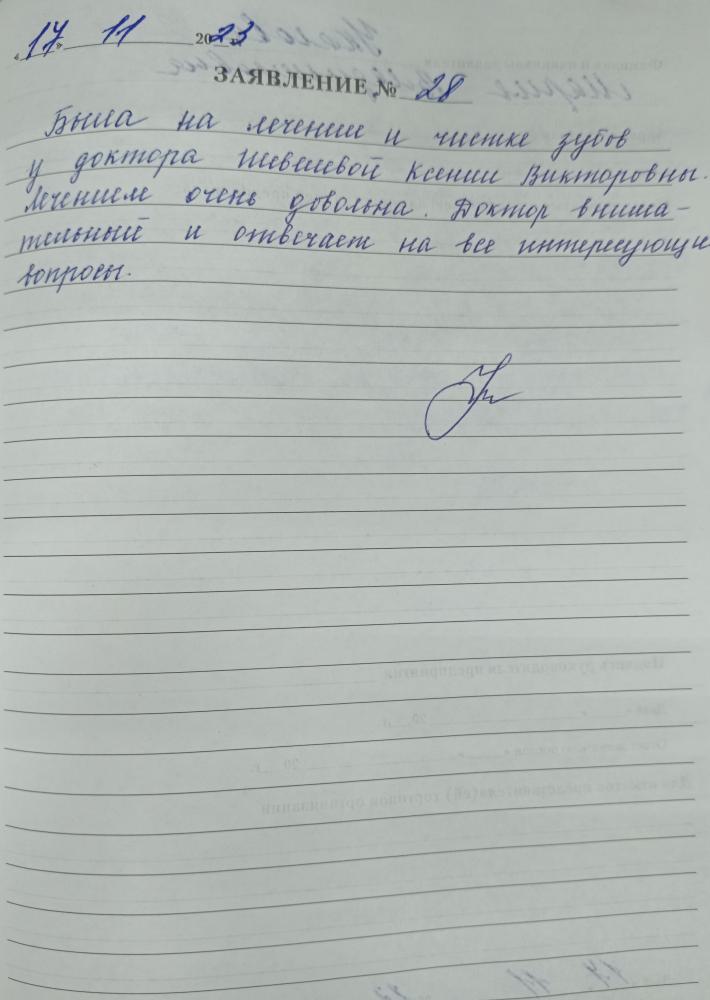 «17» 11 2023 г.
ЗАЯВЛЕНИЕ № 28
Была на лечении и чистке зубов
у доктора Шевелевой Ксении Викторовны.
Лечением очень довольна. Доктор внима-
тельный и отвечает на все интересующие
вопросы.